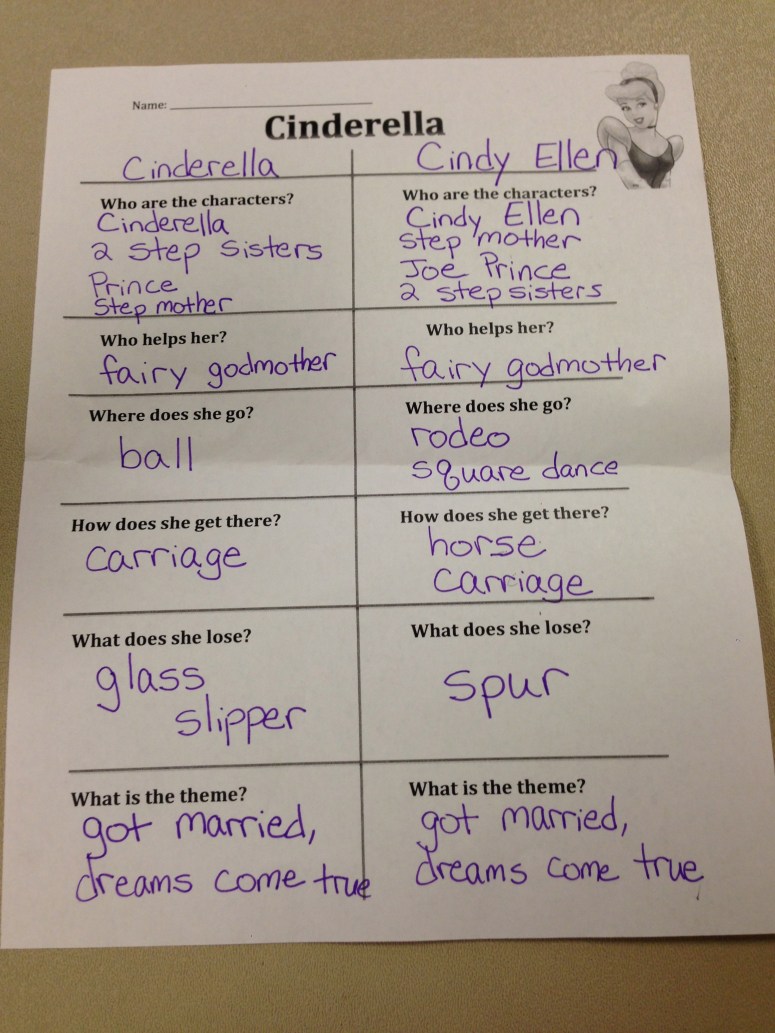 Name:
Cinderella
Cinderella
Who are the characters?
Cinderella
2 step sisters
Prince
Step mother
Who helps her?
fairy godmother
Where does she go?
ball
How does she get there?
carriage
What does she lose?
glass
slipper
What is the theme?
got married,
dreams come true
Cindy Ellen
Who are the characters?
Cindy Ellen
step mother
Joe Prince
2 step sisters
Who helps her?
fairy godmother
Where does she go?
rodeo
square dance
How does she get there?
horse
carriage
What does she lose?
spur
What is the theme?
got married,
dreams come true